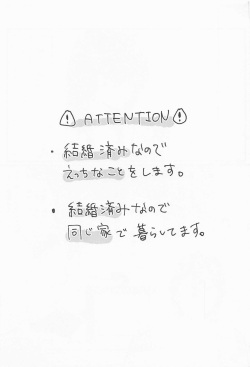 ⚠ ATTENTION ⚠
・結婚済みなので
えっちなことをします。
・結婚済みなので
同じ家で暮らしてます。